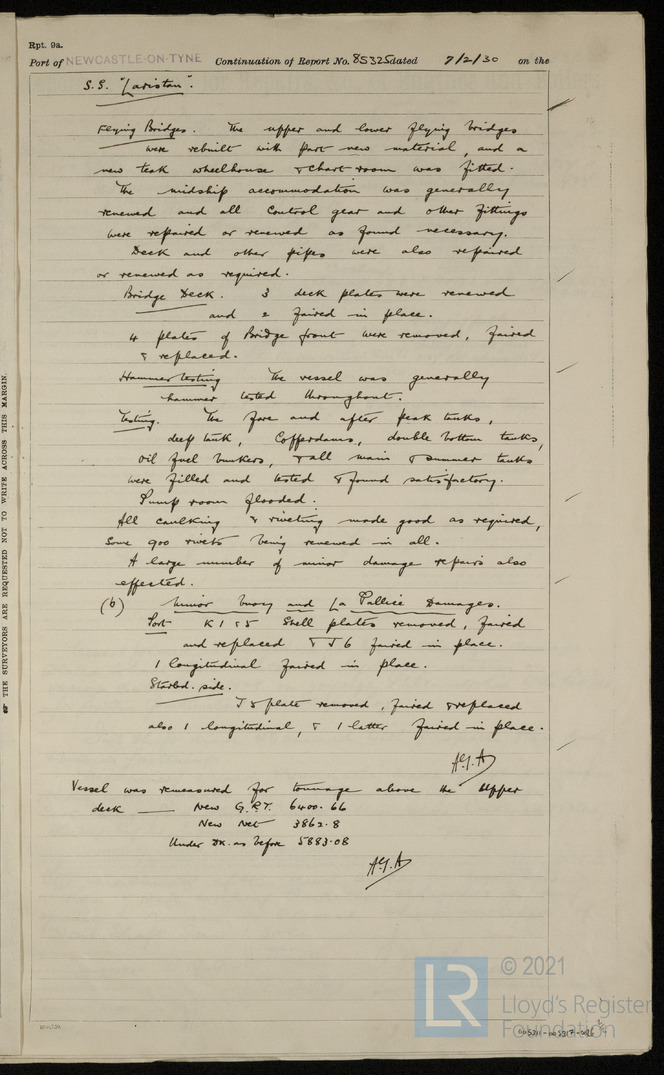 Rpt. 9a.
Port of NEWCASTLE-ON-TYNE Continuation of Report No. 85325 dated 7/2/30 on the
S.S. "Laristan".
Flying Bridges. The upper and lower flying bridges
were rebuilt with part new material, and a
new teak wheelhouse & chart room was fitted.
The midship accommodation was generally
renewed and all control gear and other fittings
were repaired or renewed as found necessary.
Deck and other pipes were also repaired
or renewed as required.
Bridge Deck. 3 deck plates were renewed
and 2 faired in place.
4 plates of Bridge front were removed, faired
& replaced.
Hammer testing The vessel was generally
hammer tested throughout.
Testing. The fore and after peak tanks,
deep tank, Cofferdams, double bottom tanks,
oil fuel bunkers, & all main & summer tanks
were filled and tested & found satisfactory.
Pump room flooded.
All caulking & riveting made good as required,
some 900 rivets being renewed in all.
A large number of minor damage repairs also
effected.
(b) Minor buoy and La Pallice Damages.
Port K 1 & 5 Shell plates removed, faired
and replaced & J 6 faired in place.
1 longitudinal faired in place.
Starbd. side.
J 8 plate removed, faired & replaced
also 1 longitudinal, & 1 latter faired in place.
A.G.A
Vessel was remeasured for tonnage above the upper
deck — New G.R.T. 6400.66
New Net 3862.8
Under DK. as before 5883.08
A.G.A
THE SURVEYORS ARE REQUESTED NOT TO WRITE ACROSS THIS MARGIN.
LR
© 2021
Lloyd's Register
Foundation